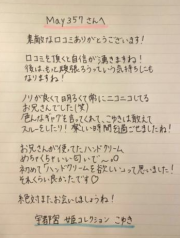 May357さんへ
素敵な口コミありがとうございます！
口コミを頂くと自信が湧きますね！
後は、もっと頑張ろうっていう気持ちにも
なりますね！
ノリが良くて明るくて常にニコニコしてる
お兄さんでした(笑)
色んなギャグを言ってくれて、こゆきは敢えて
スルーをしたり！楽しい時間を過ごせましたね！
お兄さんが使ってたハンドクリーム
めちゃくちゃいい匂いで〜
初めて「ハンドクリームを欲しい」って思いました！
それくらい良かったです
絶対またお会いしましょうね！
宇都宮 姫コレクション こゆき